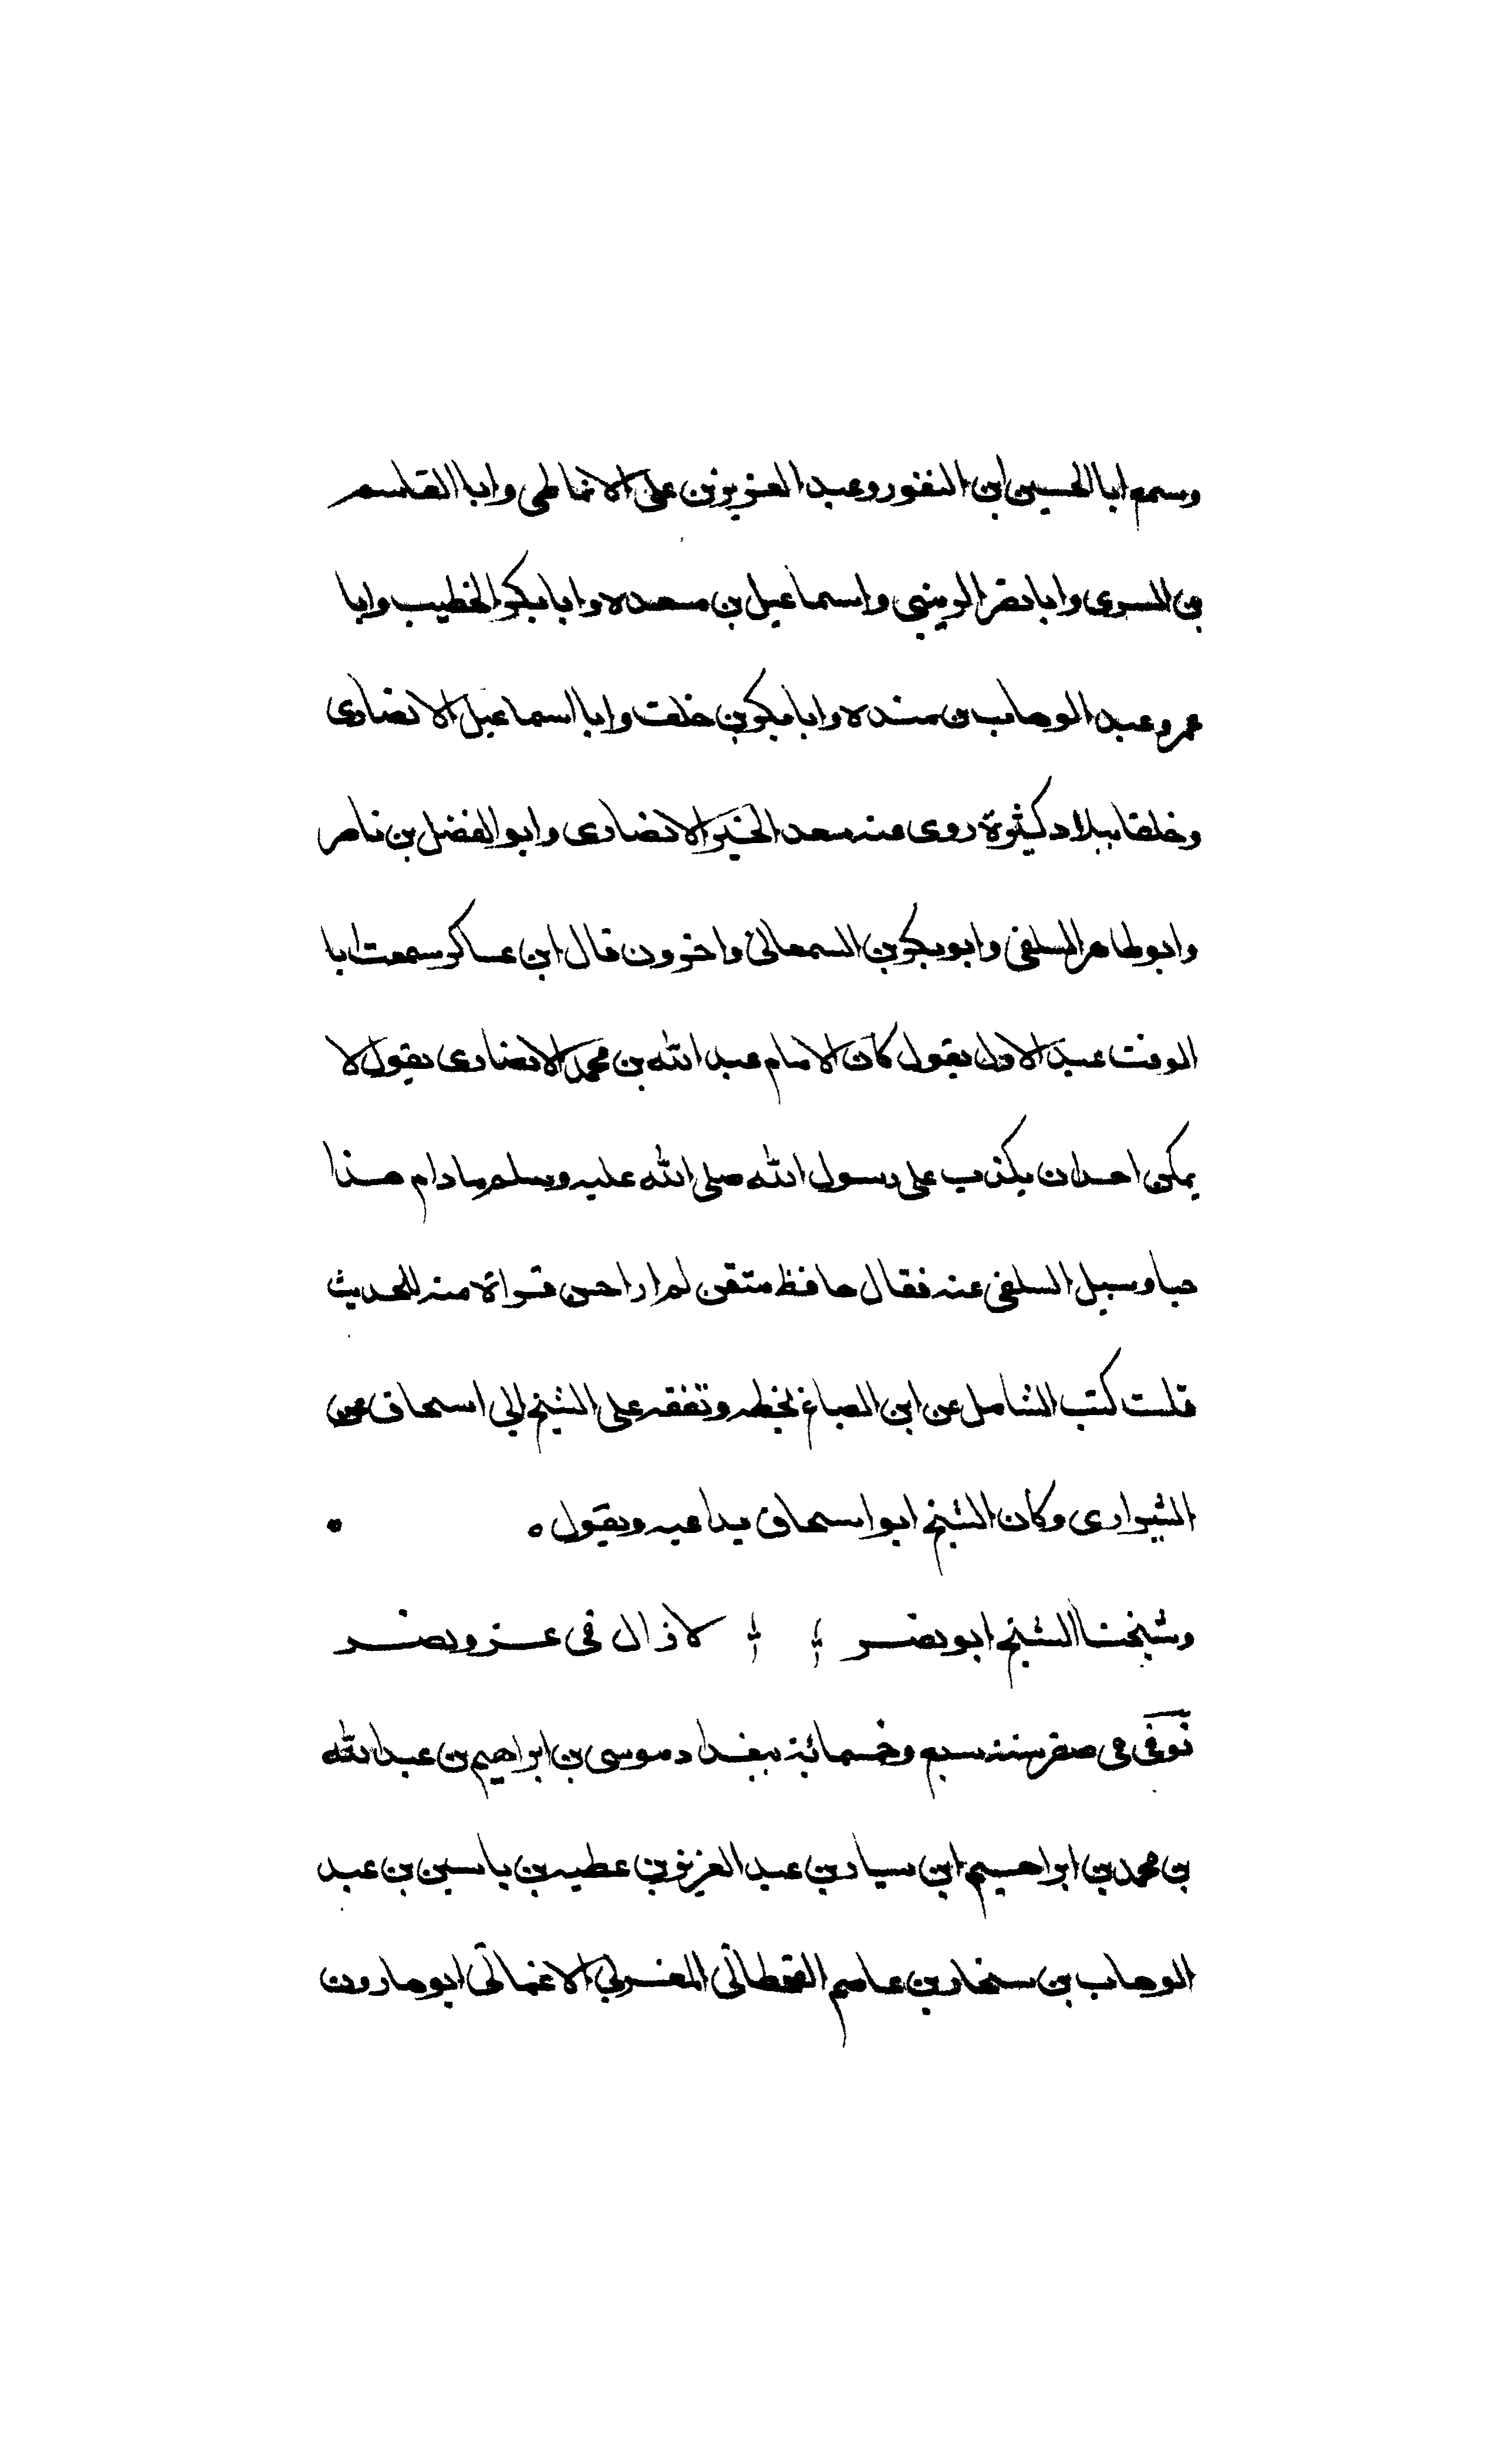 وسمع ابا الحسين ابن النقور وعبد العزيز بن على الانماطى وابا القاسم
بن السرى وابا نصر الزينبى واسماعيل بن مسعده وابا بكر الخطيب وابا
عمرو عبد الوهاب بن منده وابا بكر بن خلف وابا اسماعيل الانصارى
وخلقا ببلاد كثيرة روى عنه سعد الخير الانصارى وابو الفضل بن ناصر
وابو طاهر السلفى وابو بكر بن السمعانى واخرون قال ابن عساكر سمعت ابا
الوقت عبد الاول يقول كان الامام عبد الله بن محمد الانصارى يقول لا
يمكن احدا ن يكذب على رسول الله صلى الله عليه وسلم ما دام هذا
حيا وسيل السلفى عنه فقال حافظ متقن لم ار احسن قراة منه للحديث
قلت كتب الشامل عن ابن الصباغ بخطه وتفقه على الشيخ ابى اسحاق
الشيرازى وكان الشيخ ابو اسحاق يداعبه ويقول ه
وشيخنا الشيخ ابو نصر لا زال فى عز ونصر
توفى فى صفر سنة سبع وخمسمائة ببغداد موسى بن ابراهيم بن عبد الله
بن محمد بن ابراهيم ابن سيار بن عبد العزيز بن عطيه بن ياسين بن عبد
الوهاب بن سنحار بن عاصم القحطانى المغربى الاغماتى ابو هارون